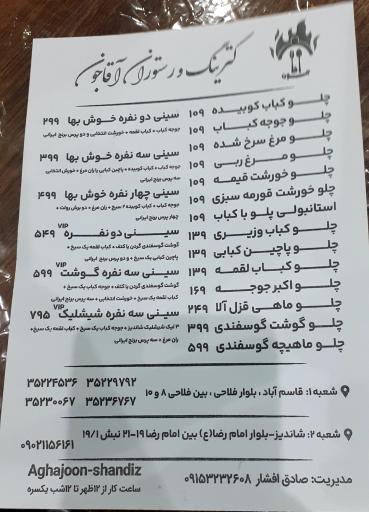 کترینگ و رستوران آقاجون
چلو کباب کوبیده ۱۰۹
چلو جوجه کباب ۱۰۹
چلو مرغ سرخ شده ۱۰۹
چلو مرغ ربی ۱۰۹
چلو خورشت قیمه ۱۰۹
چلو خورشت قورمه سبزی ۱۰۹
استانبولی پلو با کباب ۱۰۹
چلو کباب وزیری ۱۳۹
چلو پاچین کبابی ۱۳۹
چلو کباب لقمه ۱۳۹
چلو اکبر جوجه ۱۶۹
چلو ماهی قزل آلا ۲۴۹
چلو گوشت گوسفندی ۳۹۹
چلو ماهیچه گوسفندی ۵۹۹
سینی دو نفره خوش بها ۲۹۹
جوجه کباب + کباب لقمه + خورشت انتخابی و دو پرس برنج ایرانی
سینی سه نفره خوش بها ۳۹۹
جوجه کباب + کباب کوبیده + پاچین کبابی یا ران مرغ + خورش انتخابی
سه پرس برنج ایرانی
سینی چهار نفره خوش بها ۴۹۹
جوجه کباب + کباب کوبیده ۲ سیخ + ران مرغ + دو برش رولت +
چهار پرس برنج ایرانی
سینی دو نفره VIP ۵۴۹
گوشت گوسفندی گردن یا کتف + کباب لقمه یک سیخ +
پاچین کبابی یک سیخ + و دو پرس برنج ایرانی
سینی سه نفره گوشت VIP ۵۹۹
گوشت گوسفندی گردن یا کتف + جوجه کباب یک سیخ +
کباب لقمه یک سیخ + خورشت انتخابی + سه پرس برنج ایرانی
سینی سه نفره شیشلیک VIP ۷۹۵
۳ تیکه شیشلیک شاندیز + جوجه کباب یک سیخ + کباب لقمه یک سیخ +
ران مرغ + سه پرس برنج ایرانی
شعبه ۱: قاسم آباد ، بلوار فلاحی ، بین فلاحی ۸ و ۱۰
۳۵۲۲۹۷۹۲ ۳۵۲۲۴۵۳۶
۳۵۲۳۶۷۶۷ ۳۵۲۳۰۰۶۷
شعبه ۲: شاندیز-بلوار امام رضا(ع) بین امام رضا ۱۹-۲۱ نبش ۱۹/۱
۰۹۰۲۱۱۵۶۱۶۱
مدیریت: صادق افشار ۰۹۱۵۳۲۳۲۶۰۸
Aghajoon-shandiz
ساعت کار از ۱۲ظهر تا ۱۲شب یکسره